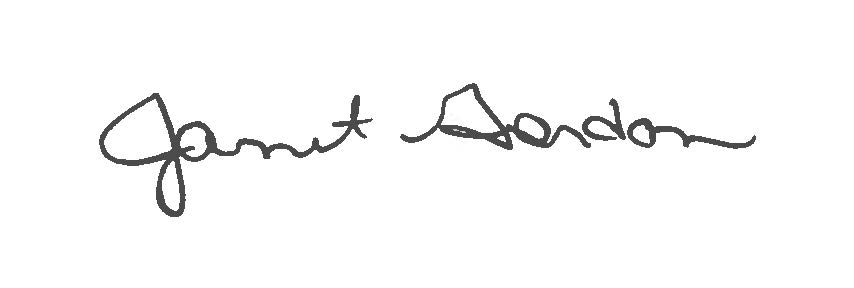 Janet Gordon